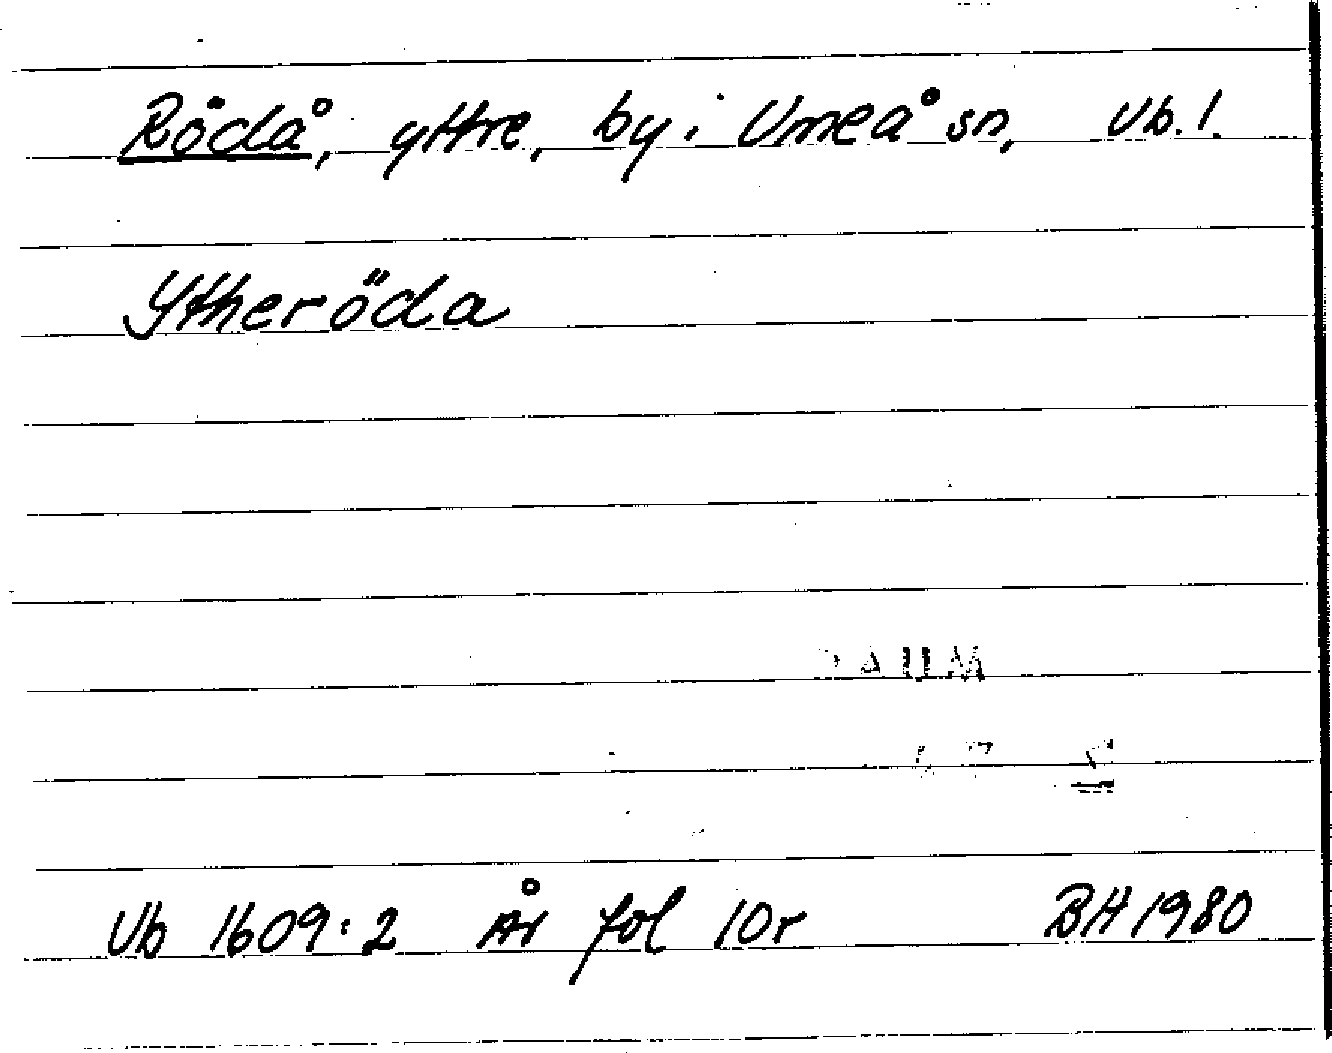 Rödå, yttre, by i Umeå sn, Vb. l.
Ytheröda
DAUM
Vb 1609:2 År fol 10r BH 1980